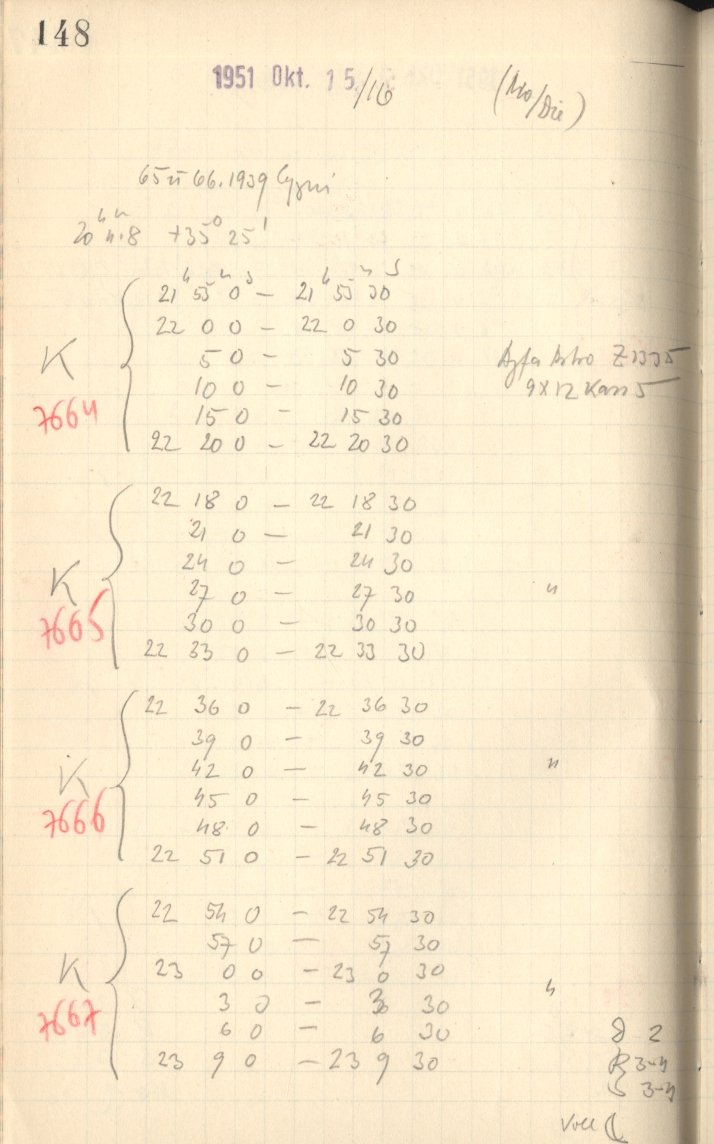 148
1951 Okt. 15/16 (Mo/Die)
65 u 66.1939 Cygni
20ʰ 4ᵐ.8 +35° 25'
21ʰ 55ᵐ 0ˢ – 21ʰ 55ᵐ 30ˢ
22 0 0 – 22 0 30
K 5 0 – 5 30 Agfa Astro Z1335
10 0 – 10 30 9x12 Kass 5
7664 15 0 – 15 30
22 20 0 – 22 20 30
22 18 0 – 22 18 30
21 0 – 21 30
24 0 – 24 30
K 27 0 – 27 30 "
7665 30 0 – 30 30
22 33 0 – 22 33 30
22 36 0 – 22 36 30
39 0 – 39 30
K 42 0 – 42 30 "
45 0 – 45 30
7666 48 0 – 48 30
22 51 0 – 22 51 30
22 54 0 – 22 54 30
57 0 – 57 30
K 23 0 0 – 23 0 30
3 0 – 3 30 "
7667 6 0 – 6 30 2
23 9 0 – 23 9 30 R 3-4
S 3-4
Voll ☾